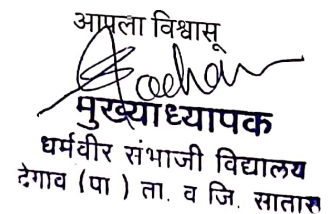 आपला विश्वासू
मुख्याध्यापक
धर्मवीर संभाजी विद्यालय
देगाव (पा ) ता. व जि. सातारा